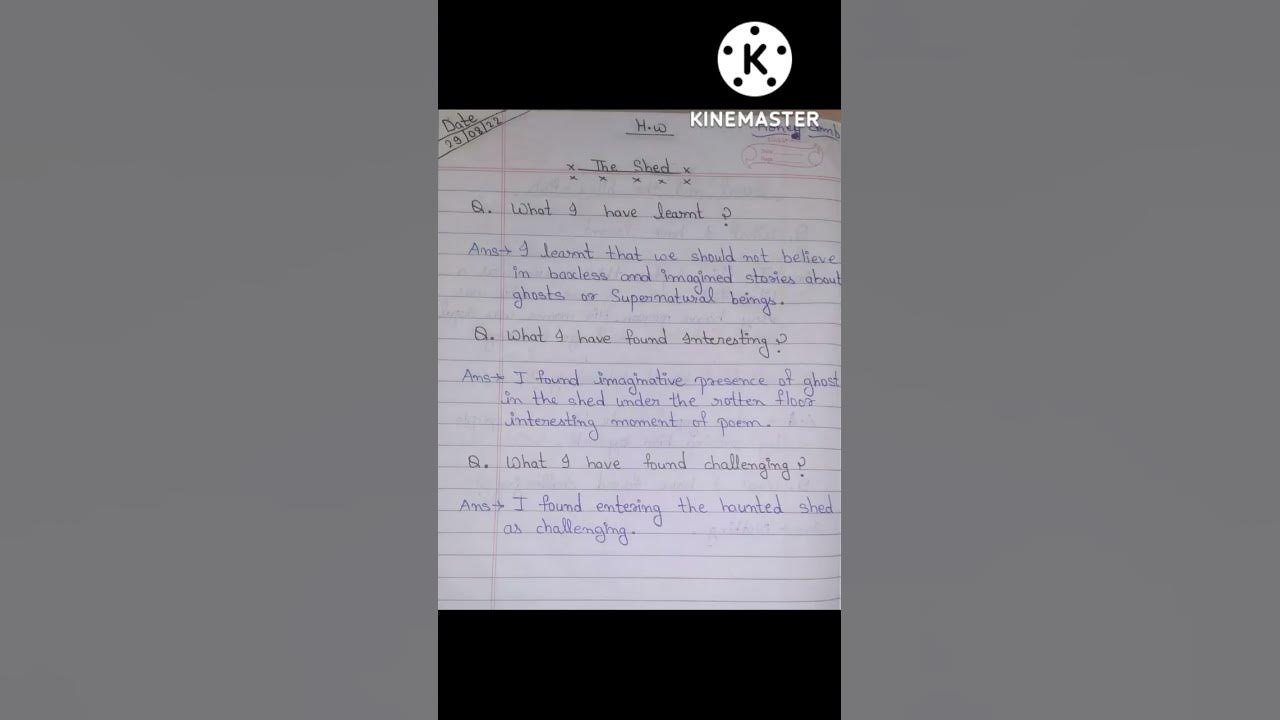 K
KINEMASTER
Date
29/08/22
H.w
The Shed
Q. What I have learnt ?
Ans→ I learnt that we should not believe
in baseless and imagined stories about
ghosts or Supernatural beings.
Q. What I have found Interesting ?
Ans→ I found imaginative presence of ghost
in the shed under the rotten floor
interesting moment of poem.
Q. What I have found challenging ?
Ans→ I found entering the haunted shed
as challenging.